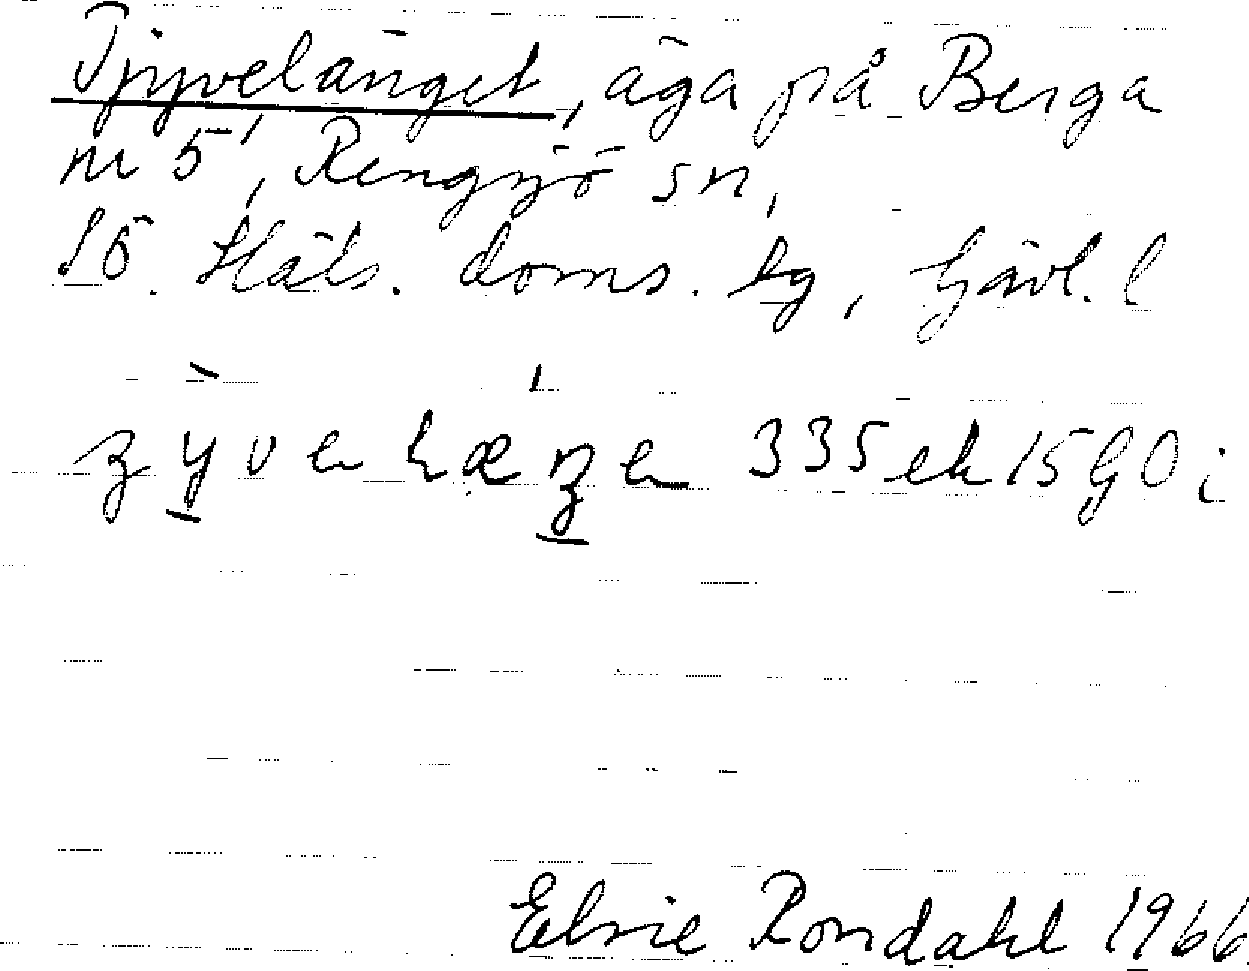 Tjyvelänget, äga på Berga
nr 5, Rengsjö sn,
Sö. Häls. doms. tg, Gävl. l
335 ek 15 G0 i
Elsie Rondahl 1966